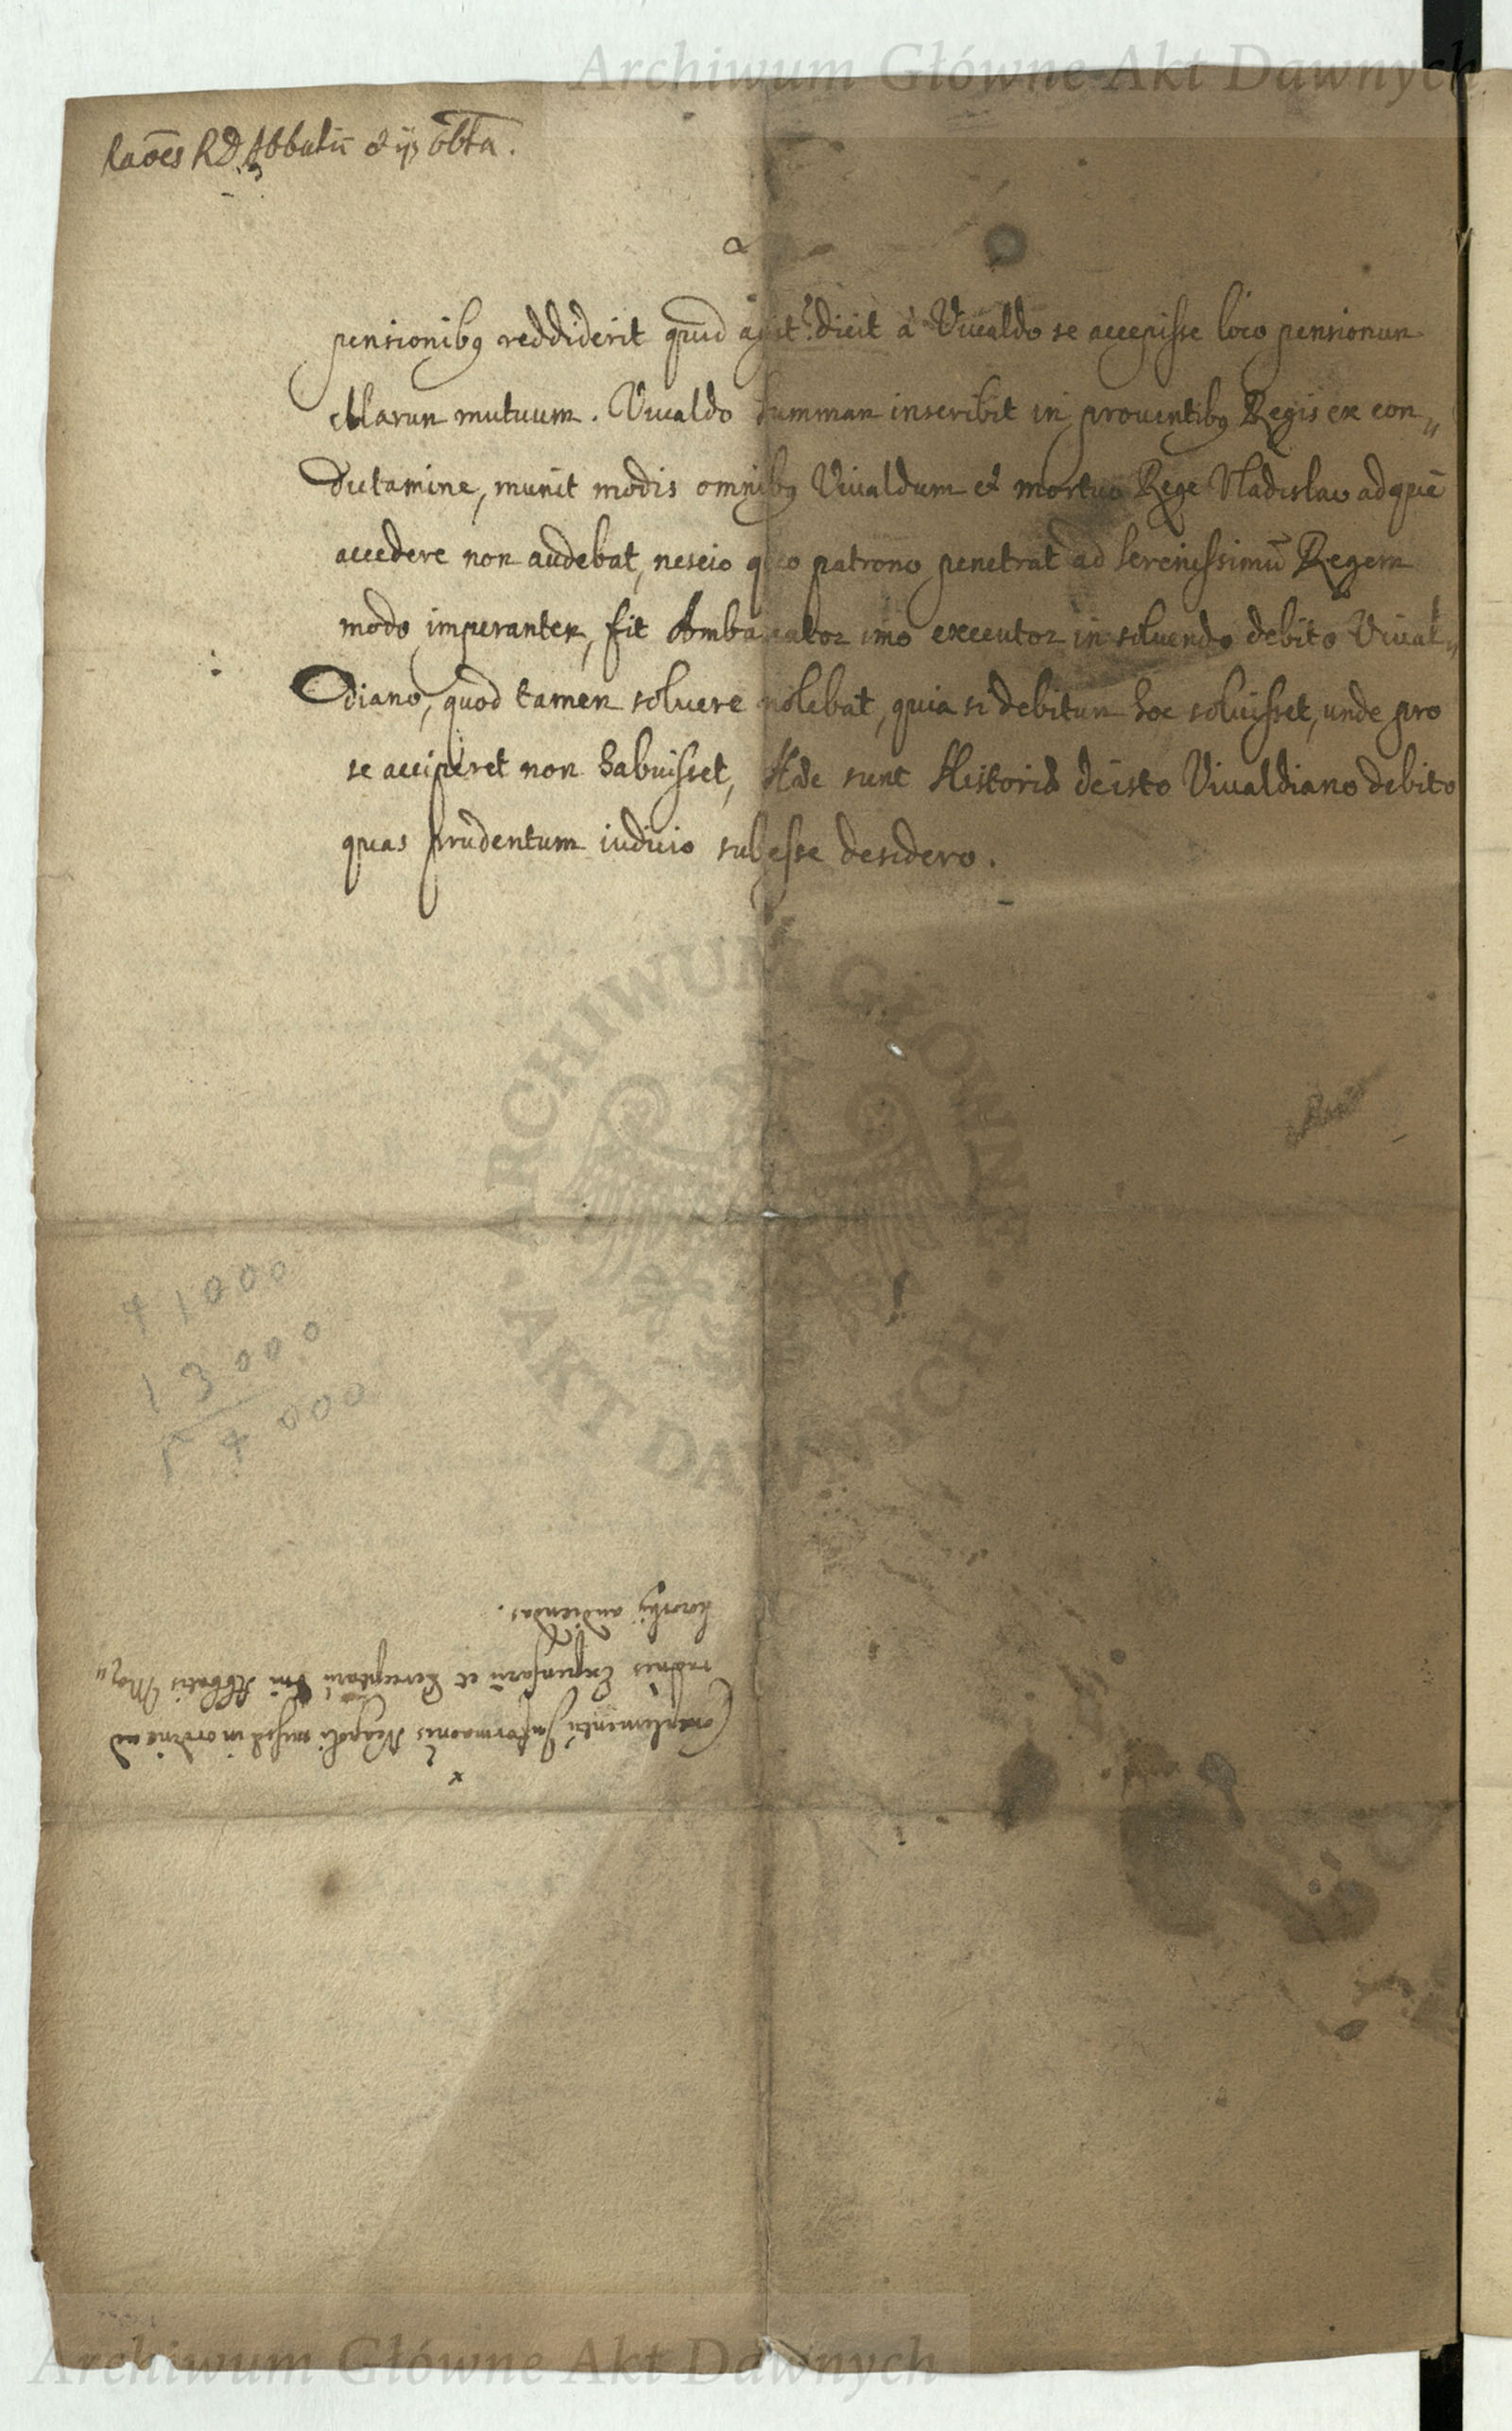 Archiwum Główne Akt Dawnych
Raões RD Abbatis & ijs obta.
pensionibꝯ reddiderit quid agit? dicit à Viualdo se accepisse loco pensionum
illarum mutuum. Viualdo summam inscribit in prouentibꝯ Regis ex con„
dictamine, munit modis omnibꝯ Viualdum et mortuo Rege Vladislao ad quē
accedere non audebat, nescio quo patrono penetrat ad serenissimū Regem
modo imperantem, fit Ambasiator imo executor in soluendo debito Viual„
diano, quod tamen soluere nolebat, quia si debitum hoc soluisset, unde pro
se acciperet non habuisset, Hae sunt Historiae de isto Viualdiano debito
quas prudentum iudicio subesse desidero.
ARCHIWUM GŁÓWNE
AKT DAWNYCH
41000
13000
54000
Complementū Informaonis Neapoli missū in ordine ad
raōnes Expensarū et Perceptarū Dni Abbatis May„
audiendas.
Archiwum Główne Akt Dawnych